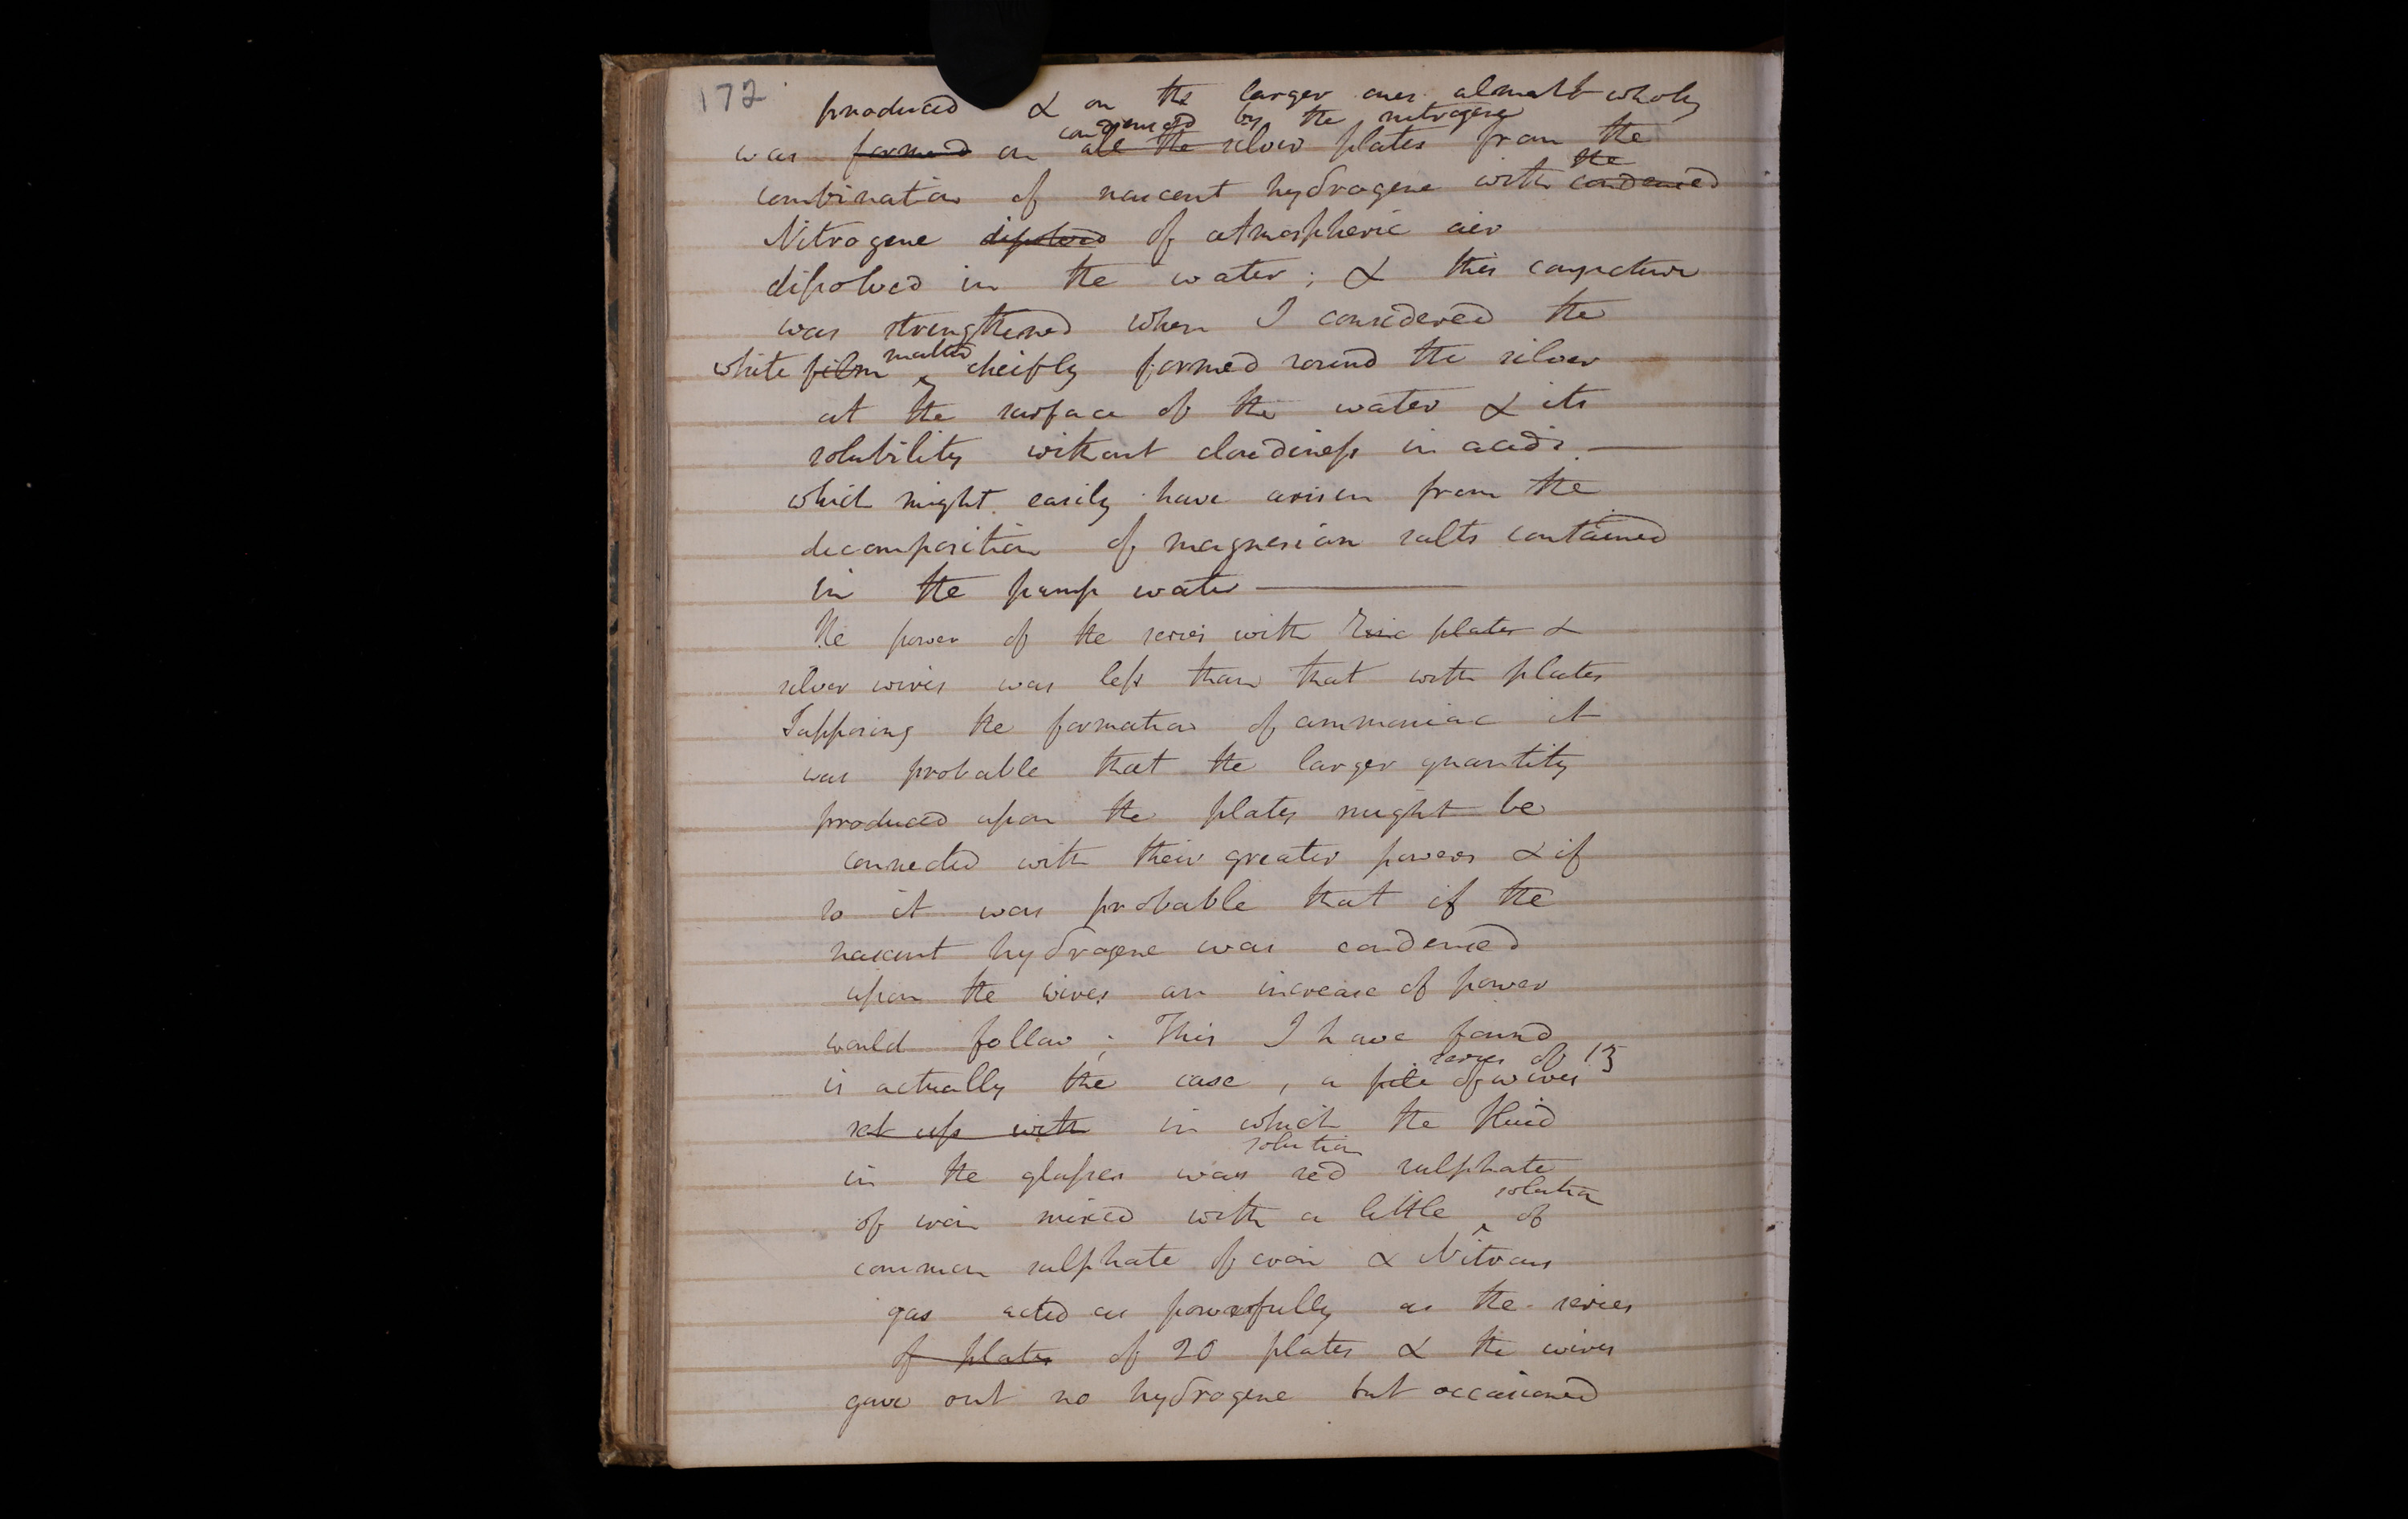 172
produced & on the larger ones almost wholy
condensed by the nitrogene
was formed on all the silver plates from the
the
combination of nascent hydrogene with condensed
Nitrogene dissolved of atmospheric air
dissolved in the water; & this conjecture
was strengthened when I considered the
matter
white film ^ cheifly formed round the silver
at the surface of the water & its
solubility without cloudiness in acids —
which might easily have arisen from the
decomposition of magnesian salts contained
in the pump water —
The power of the series with Zinc plates &
silver wires was less than that with plates
Supposing the formation of ammoniac it
was probable that the larger quantity
produced upon the plates might be
connected with their greater powers & if
so it was probable that if the
nascent hydrogene was condensed
upon the wires an increase of power
would follow; This I have found
series of 13
is actually the case, a pile of wires
set up with in which the fluid
solution
in the glasses was red sulphate
solution
of iron mixed with a little ^ of
common sulphate of iron & Nitrous
gas acted as powerfully as the series
of plates of 20 plates & the wires
gave out no hydrogene but occasioned